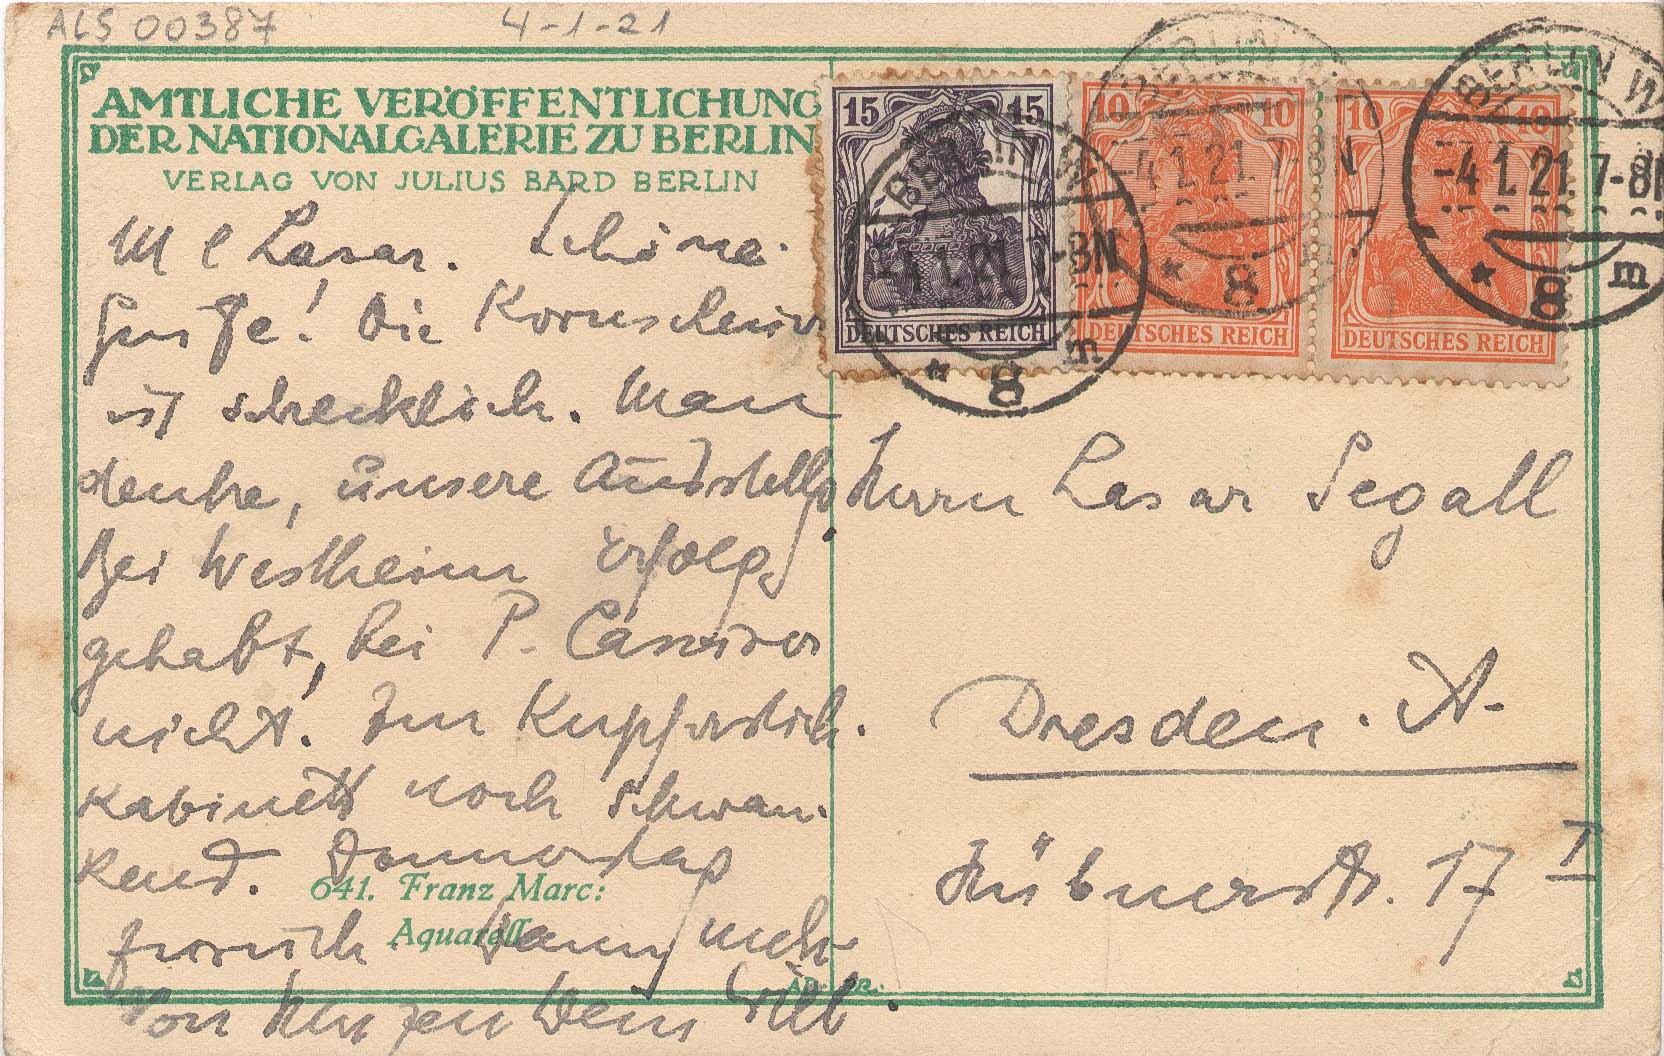 ALS 00387
4-1-21
AMTLICHE VERÖFFENTLICHUNG
DER NATIONALGALERIE ZU BERLIN
VERLAG VON JULIUS BARD BERLIN
15 15
DEUTSCHES REICH
10 10
DEUTSCHES REICH
10 10
DEUTSCHES REICH
BERLIN W
-4.1.21. 7-8N
* 8 m
BERLIN W
-4.1.21. 7-8N
* 8
BERLIN W
-4.1.21. 7-8N
* 8 m
M l Lasar. Schöne
Grüße! Die
ist schrecklich. Man
denke, unsere Ausstellg
bei Westheim Erfolg
gehabt, bei P. Cassirer
nicht. Im Kupferstich.
Kabinett noch schwan-
kend. Donnerstag
641. Franz Marc:
Aquarell
zurück. Dann mehr
von Herzen Dein Will
Herrn Lasar Segall
Dresden. A-
Hübnerstr. 17 I